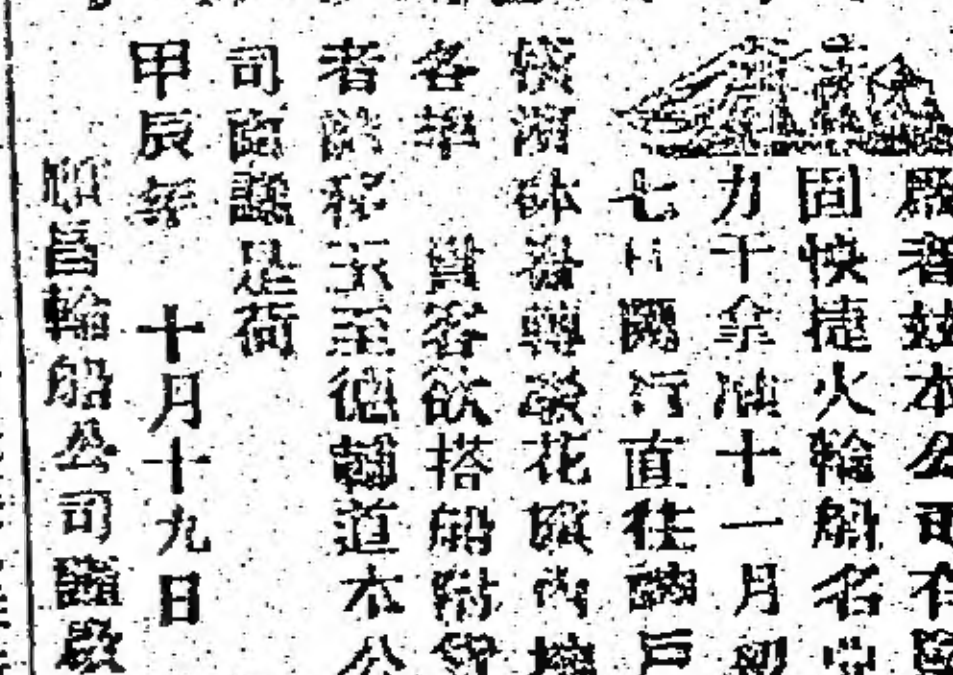 啟者茲本公司有堅
固快捷火輪船名
力干拿准十一月初
七日開行直往神戶
橫濱砵崙轉發花旗內埠
各華 貴客欲搭船附貨
者請移玉至德輔道本公
司面議是荷
甲辰年 十月十九日
順昌輪船公司謹啟